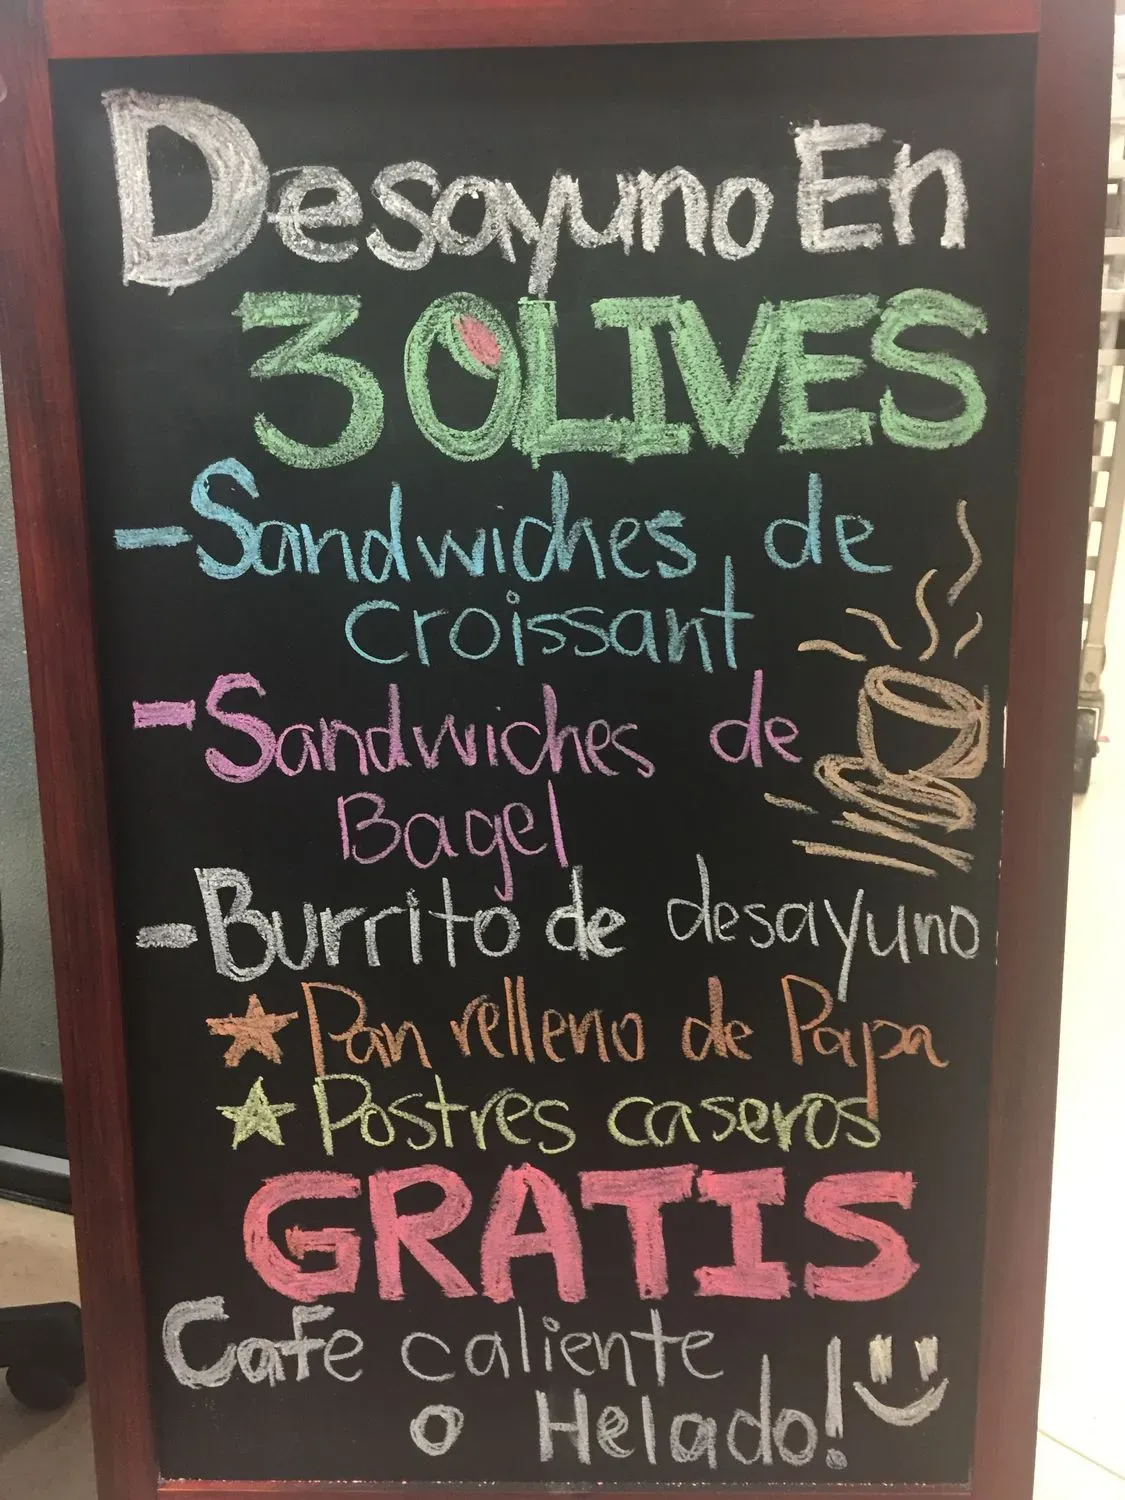 Desayuno En
3 OLIVES
-Sandwiches de
croissant
-Sandwiches de
Bagel
-Burrito de desayuno
★ Pan relleno de Papa
★ Postres caseros
GRATIS
Cafe caliente
o Helado!